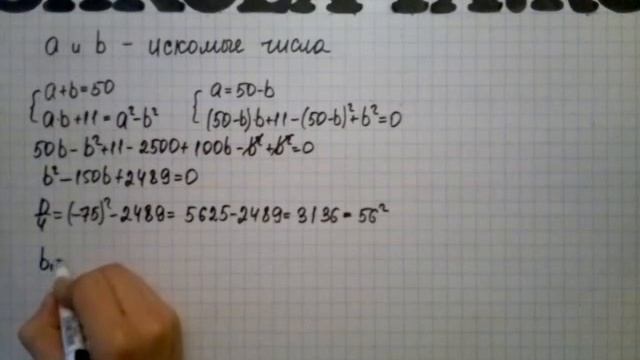 a и b - искомые числа
{a+b=50 {a=50-b
{a·b+11=a²-b² {(50-b)b+11-(50-b)²+b²=0
50b-b²+11-2500+100b-b²+b²=0
b²-150b+2489=0
D/4=(-75)²-2489=5625-2489=3136=56²
b₁=